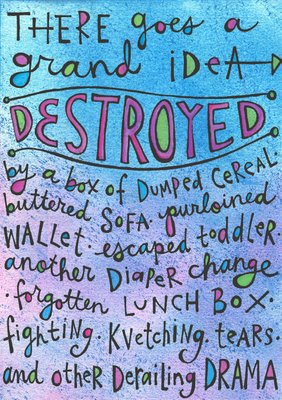 THERE goes a
grand iDEA
DESTROYED
by a box of DumpeD CeReaL·
buttered SOFA· purloined
WALLet· escaped toddler·
another DiapeR change
·forgotten LUNCH BOX·
fighting· Kvetching· tears·
and otheR DeRailing DRAMA